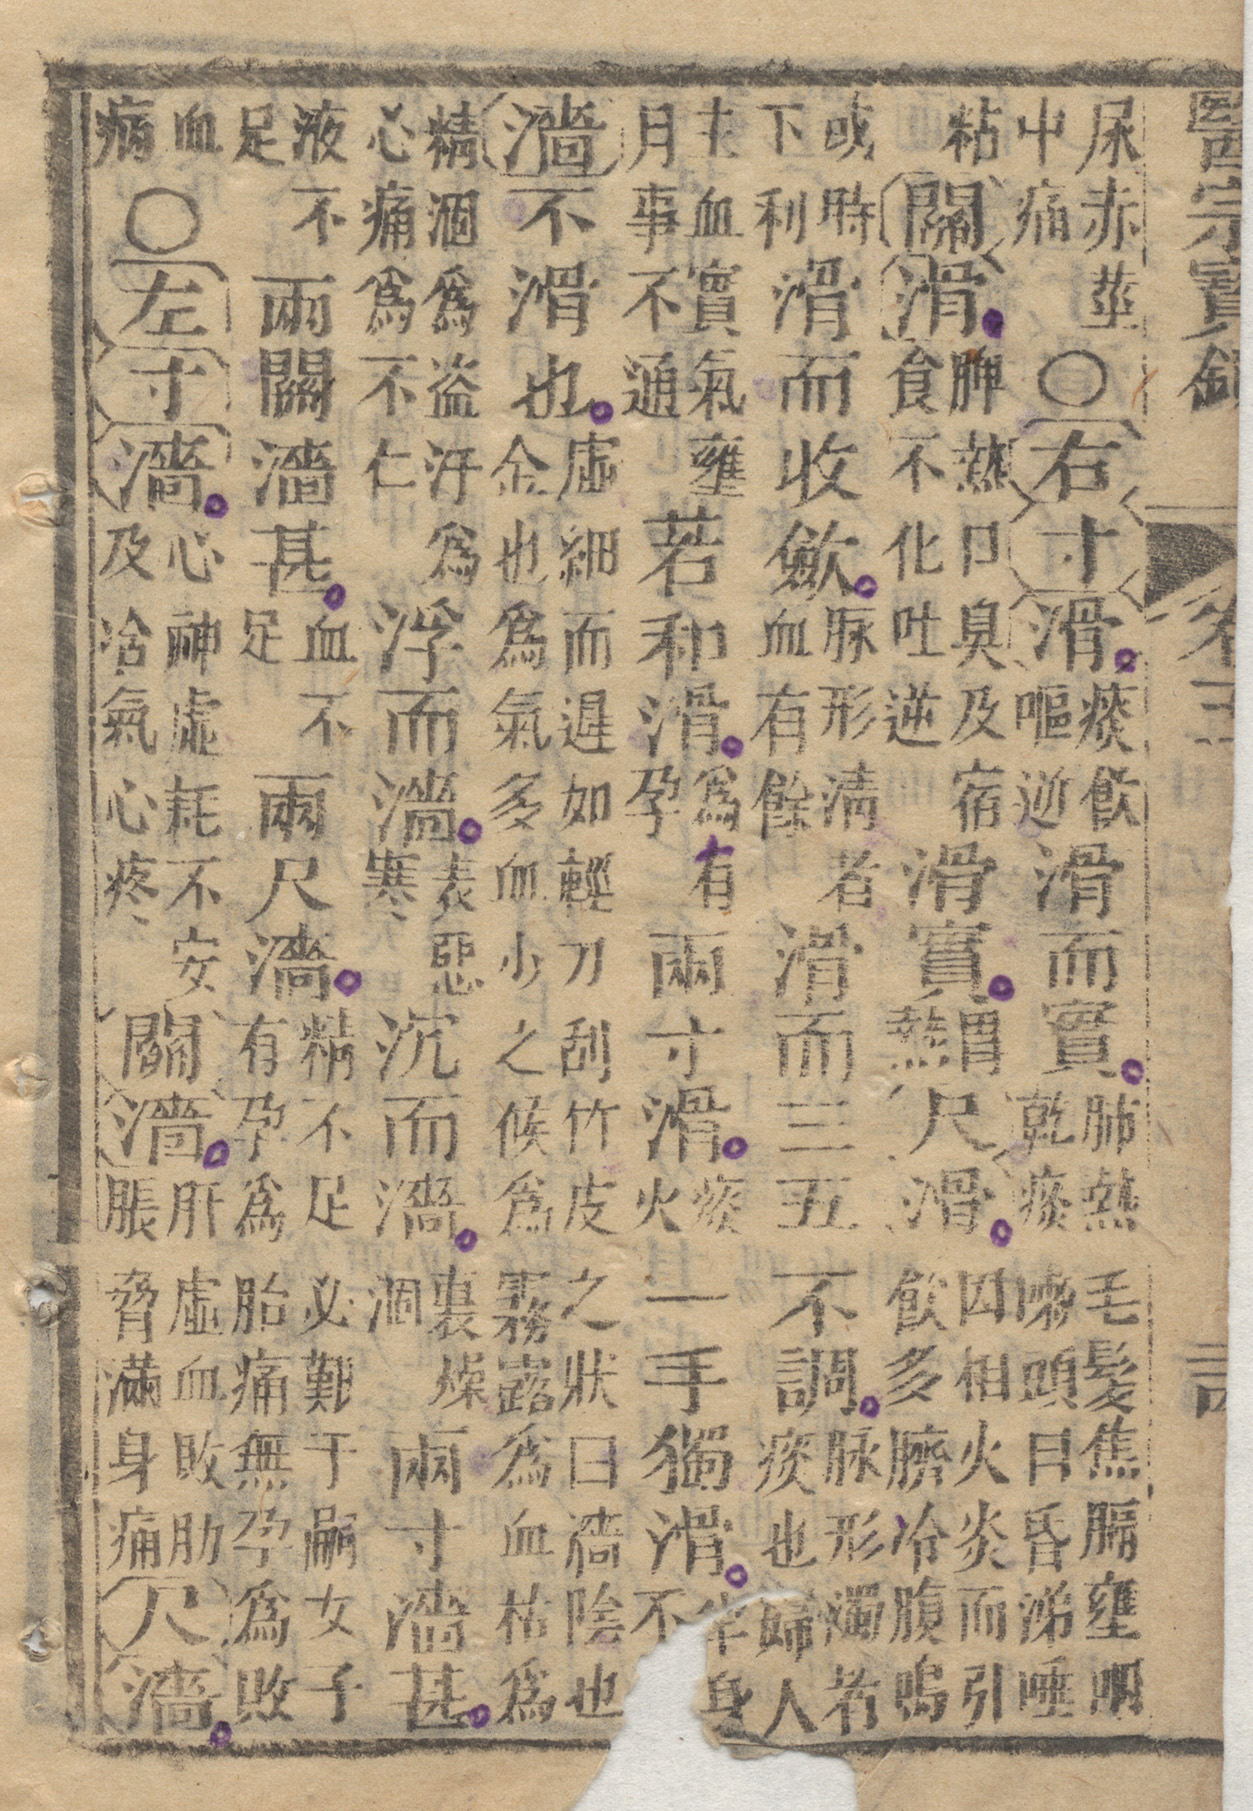 醫宗寶鏡
尿赤莖中痛○右寸滑痰飲嘔逆滑而實肺熱毛髮焦膈壅咽乾痰嗽頭目昏涕唾
粘關滑脾熱口臭及宿食不化吐逆滑實胃熱尺滑因相火炎而引飲多臍冷腹鳴
或時下利滑而收歛脉形清者血有餘滑而三五不調脉形濁者痰也婦人
主血實氣壅月事不通若和滑為有孕兩寸滑痰火一手獨滑半身不
濇不滑也虛細而遲如輕刀刮竹皮之狀曰濇陰也金也為氣多血少之候為霧露為血枯為
精涸為盜汗為心痛為不仁浮而濇表惡寒沉而濇裏燥涸兩寸濇甚
液不足兩關濇甚血不足兩尺濇精不足必難于嗣女子有孕為胎痛無孕為敗
血病○左寸濇心神虛耗不安及冷氣心疼關濇肝虛血敗肋脹脅滿身痛尺濇